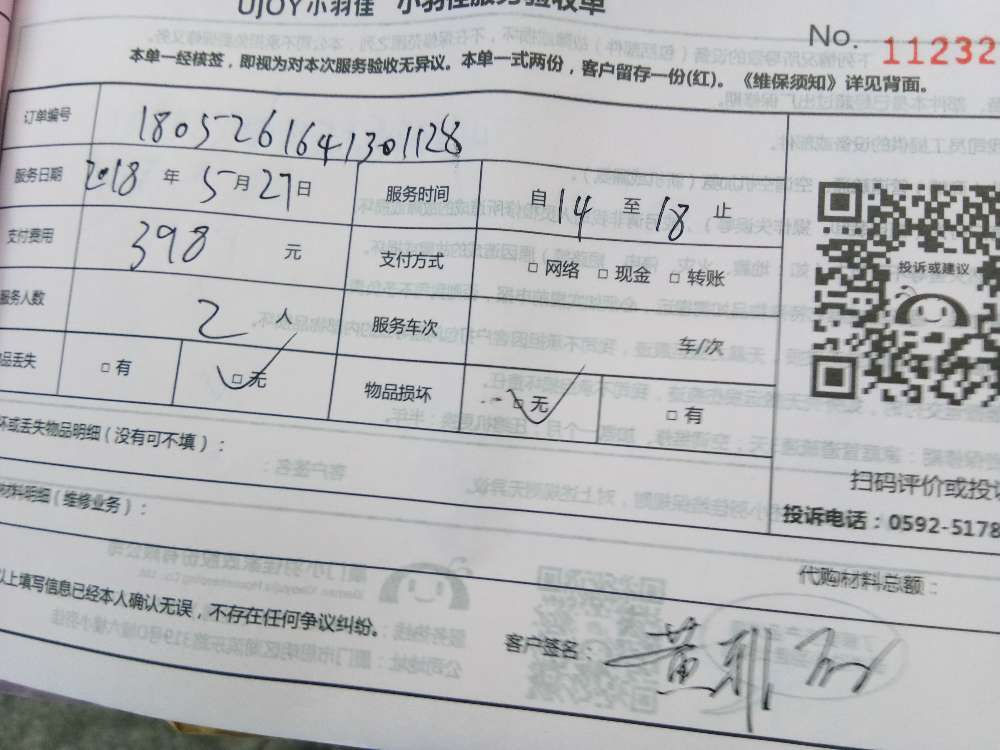 UJOY小羽佳 小羽佳服务验收单
No. 11232
本单一经核签，即视为对本次服务验收无异议。本单一式两份，客户留存一份(红)。《维保须知》详见背面。
订单编号 1805261641301128
服务日期 2018 年 5 月 27 日 服务时间 自 14 至 18 止
支付费用 398 元 支付方式 □ 网络 □ 现金 □ 转账
服务人数 2 人 服务车次 车/次
品丢失 □ 有 □ 无 物品损坏 □ 无 □ 有
投诉或建议
坏或丢失物品明细（没有可不填）：
扫码评价或投诉
材料明细（维修业务）：
投诉电话：0592-5178
代购材料总额：
以上填写信息已经本人确认无误，不存在任何争议纠纷。
客户签名：